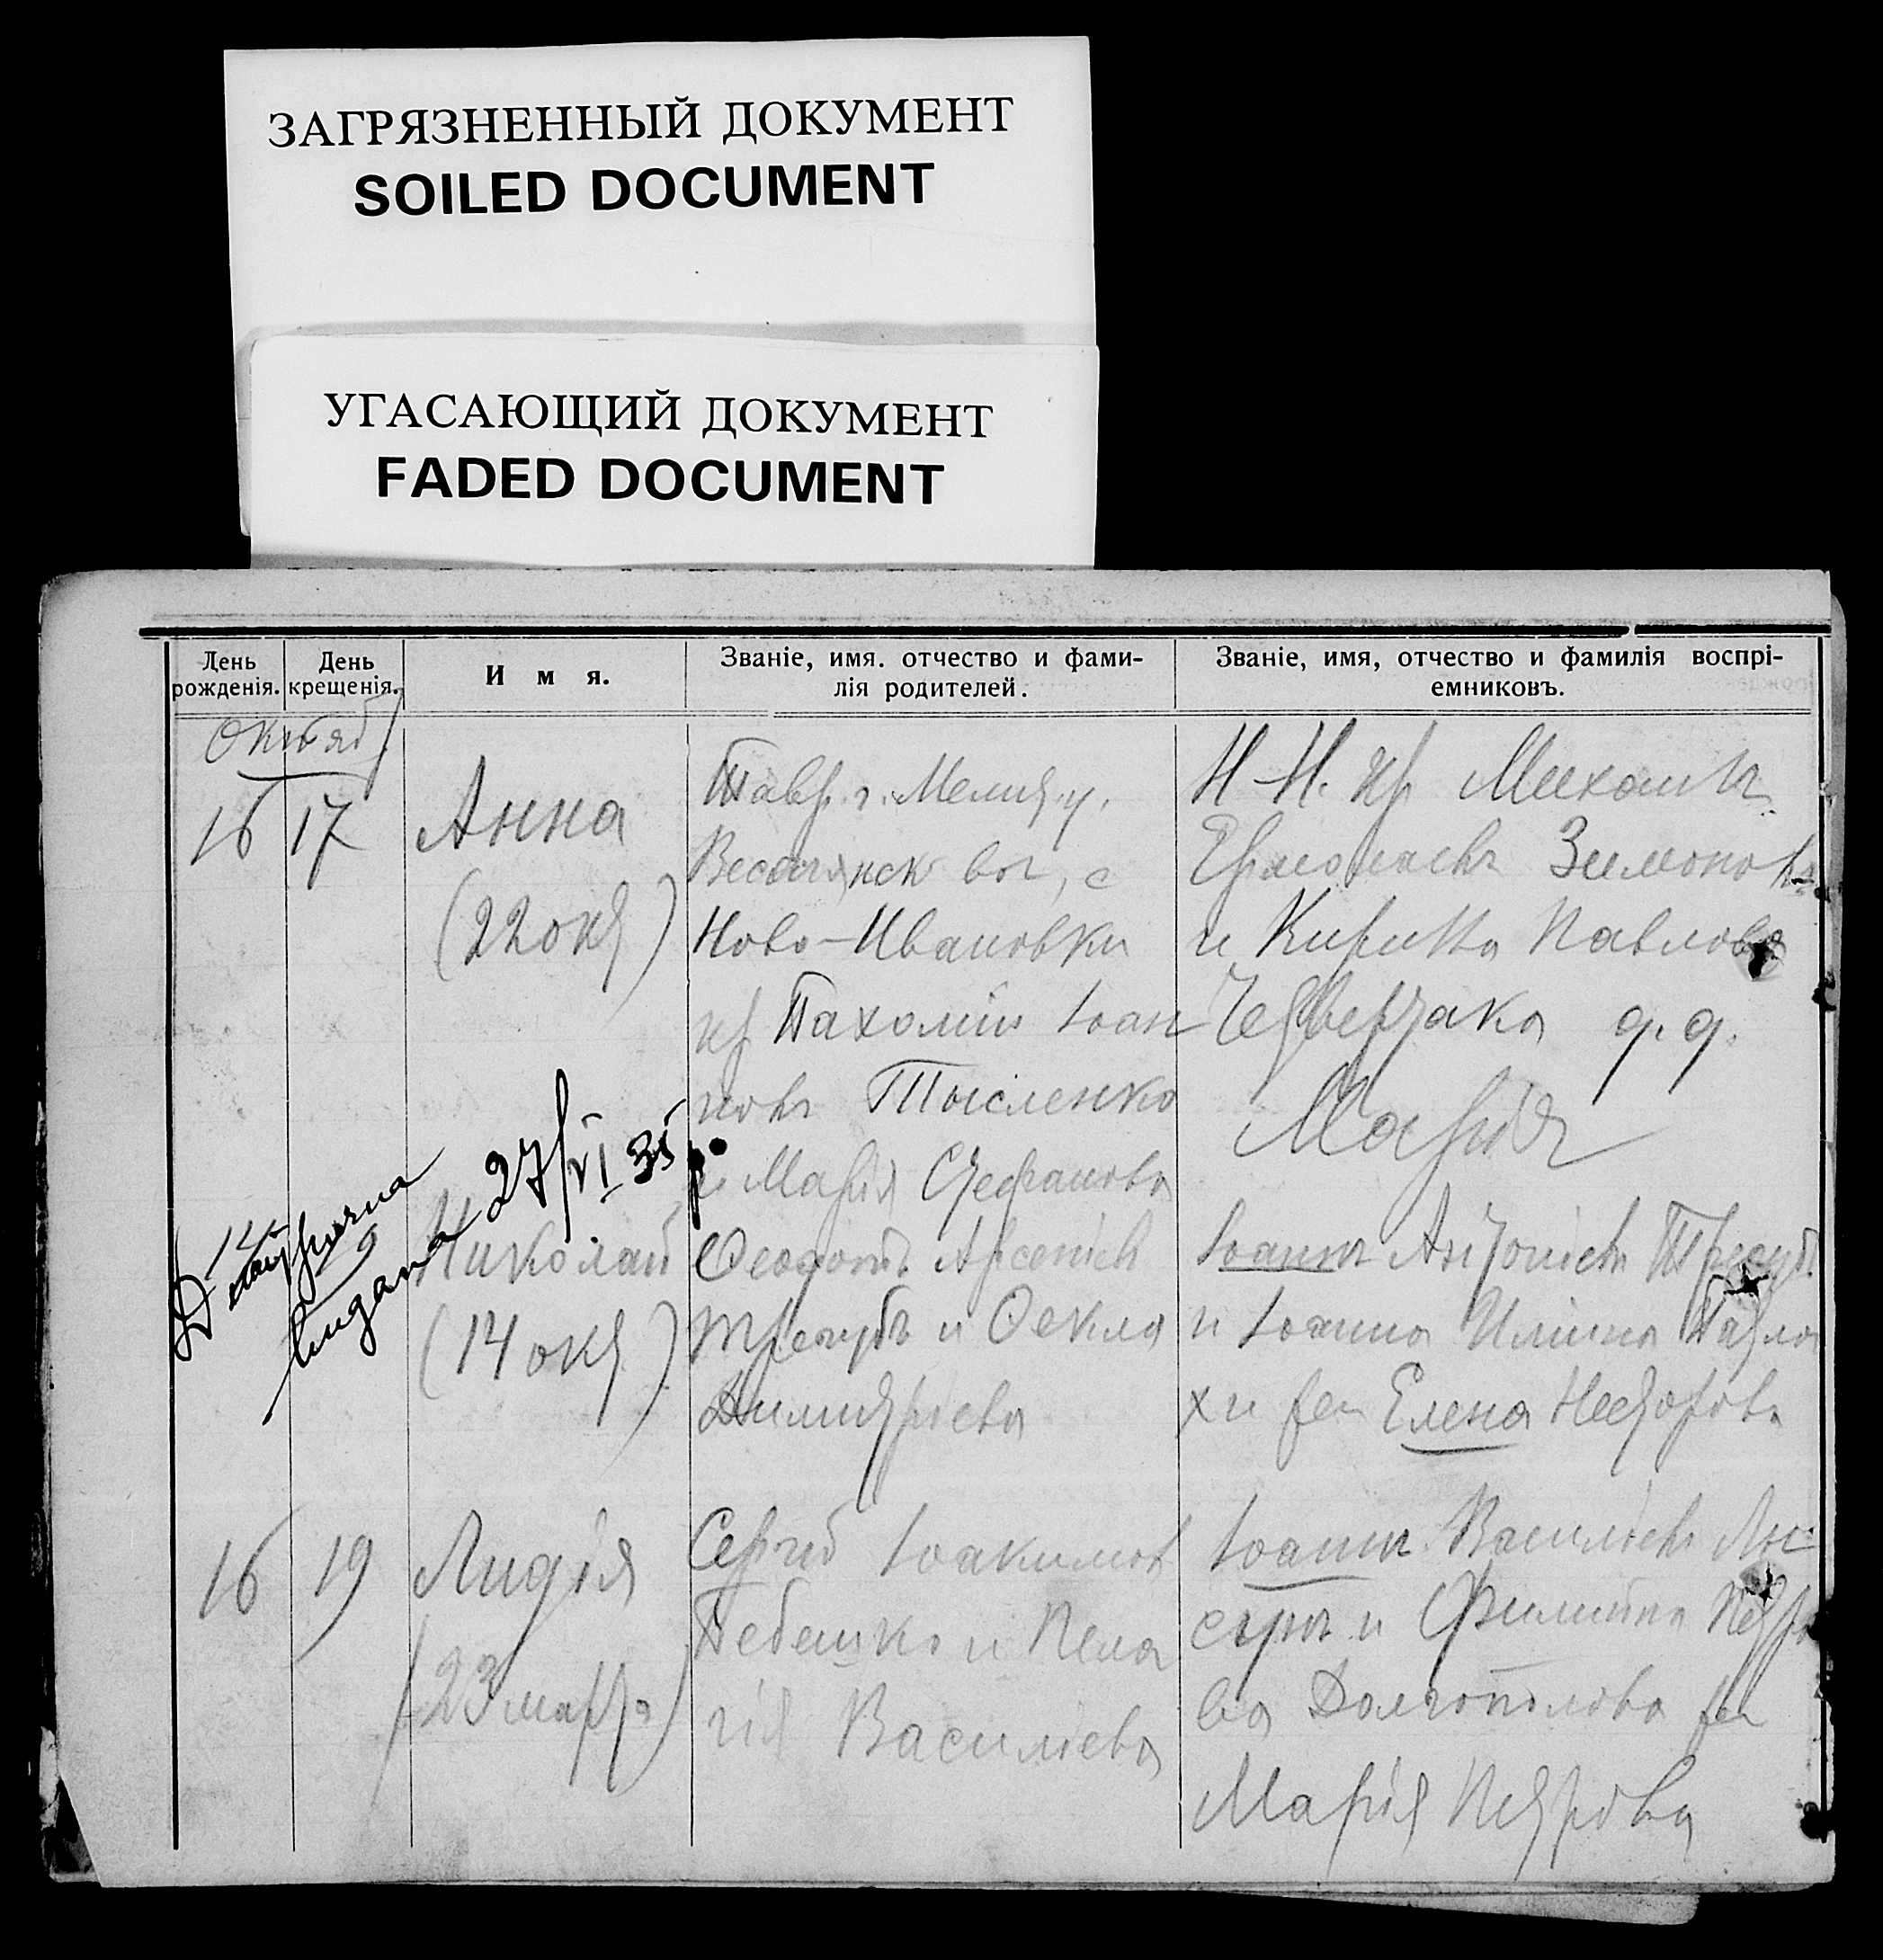 ЗАГРЯЗНЕННЫЙ ДОКУМЕНТ
SOILED DOCUMENT
УГАСАЮЩИЙ ДОКУМЕНТ
FADED DOCUMENT
День рожденія.
День крещенія.
Имя.
Званіе, имя. отчество и фами-
лія родителей.
Званіе, имя, отчество и фамилія воспрі-
емниковъ.
Октяб.
16
17
Анна
(22 окт)
Тавр. г. Мелит. у.
вол, с
Ново-Ивановки
кр Пахомій Іоан
новъ Тысленко
и Марія Стефанова
Н-Н. кр Михаилъ
Зимоновъ
и Кирика Павлова
Четвертака д. д.
Марія
27/VI 35 р.
видана
Николай
(14 окт)
Феодотъ Арсеніев
Трегубъ и Фекла
Димитріева
Іоаннъ Антоніевъ Трегуб
и Іоанна Иліина
х и Елена Несторова
16
19
Лидія
(23 марта)
Сергій Іоакимов
и Пела
гія Василіева
Іоаннъ Василіевъ Лы-
сыри и Филиппа Петро
ва Долгополова
Марія Петрова